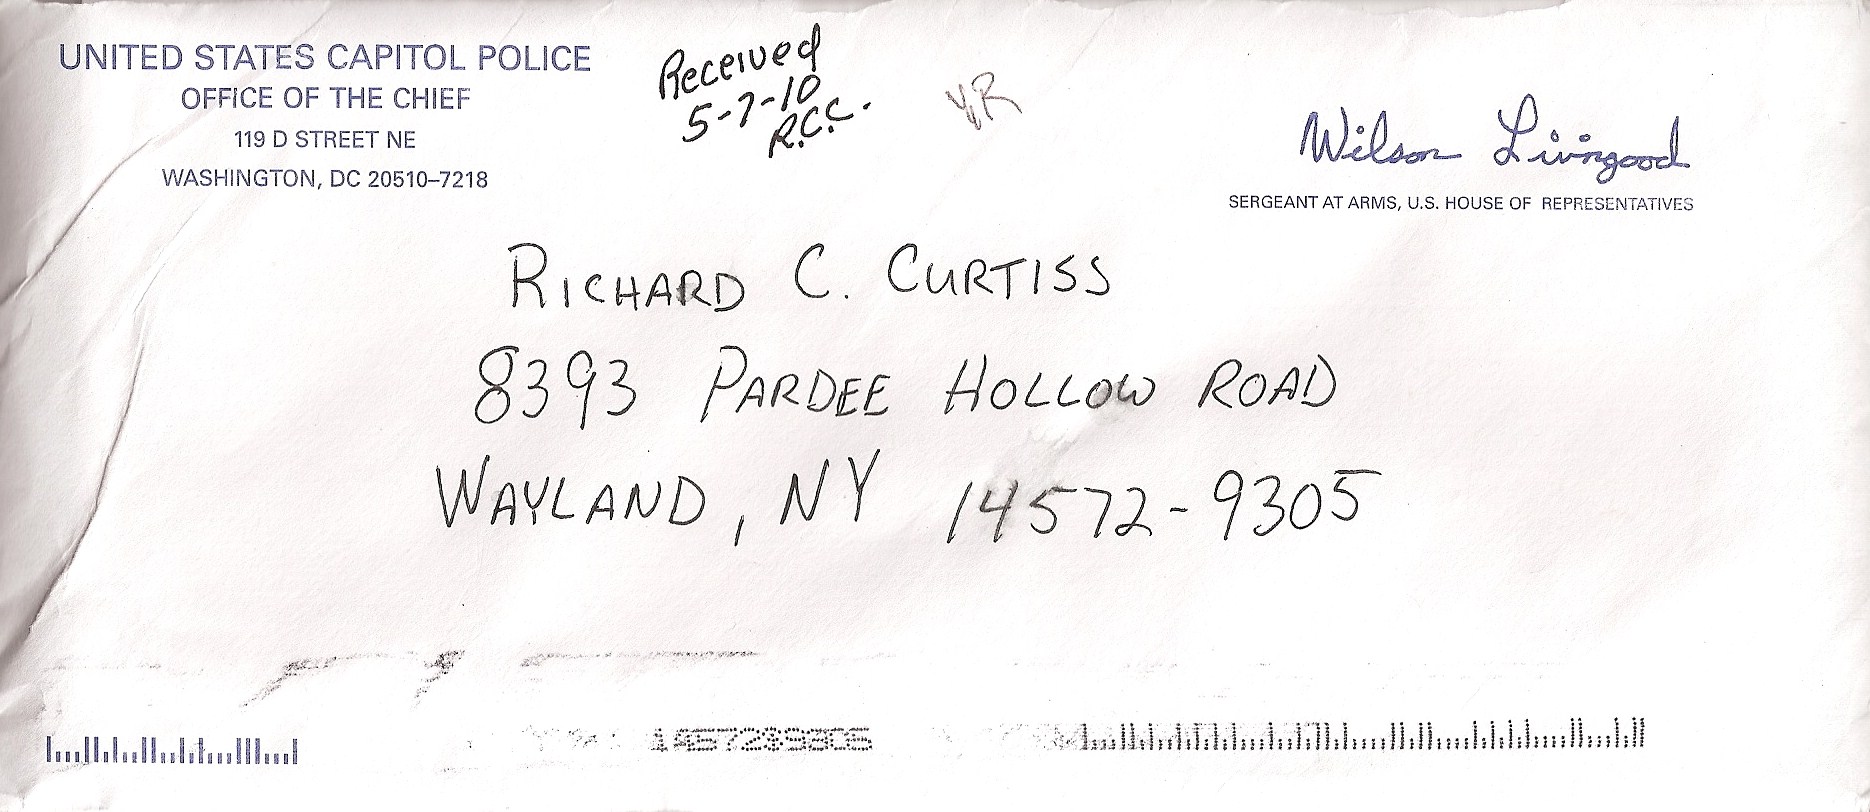 UNITED STATES CAPITOL POLICE
OFFICE OF THE CHIEF
119 D STREET NE
WASHINGTON, DC 20510–7218
Received
5-7-10
R.C.C.
VR
Wilson Livingood
SERGEANT AT ARMS, U.S. HOUSE OF REPRESENTATIVES
RICHARD C. CURTISS
8393 PARDEE HOLLOW ROAD
WAYLAND, NY 14572-9305
14572@9305